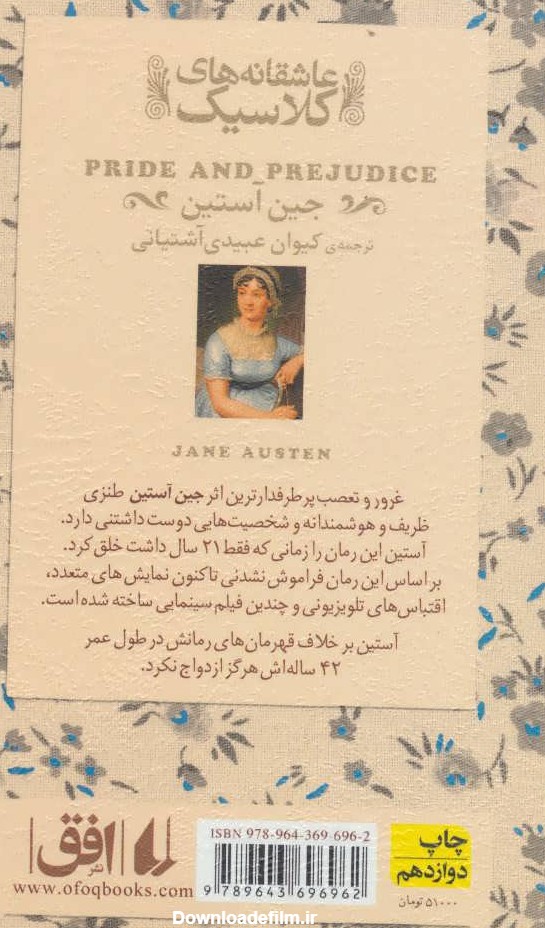 عاشقانه‌های
کلاسیک
PRIDE AND PREJUDICE
جین آستین
ترجمه‌ی کیوان عبیدی آشتیانی
JANE AUSTEN
غرور و تعصب پرطرفدارترین اثر جین آستین طنزی
ظریف و هوشمندانه و شخصیت‌هایی دوست داشتنی دارد.
آستین این رمان را زمانی که فقط ۲۱ سال داشت خلق کرد.
بر اساس این رمان فراموش نشدنی تاکنون نمایش های متعدد،
اقتباس‌های تلویزیونی و چندین فیلم سینمایی ساخته شده است.
آستین بر خلاف قهرمان‌های رمانش در طول عمر
۴۲ ساله‌اش هرگز ازدواج نکرد.
نشر افق
www.ofoqbooks.com
ISBN 978-964-369-696-2
9 789643 696962
چاپ
دوازدهم
۵۱۰۰۰ تومان
Downloadefilm.ir